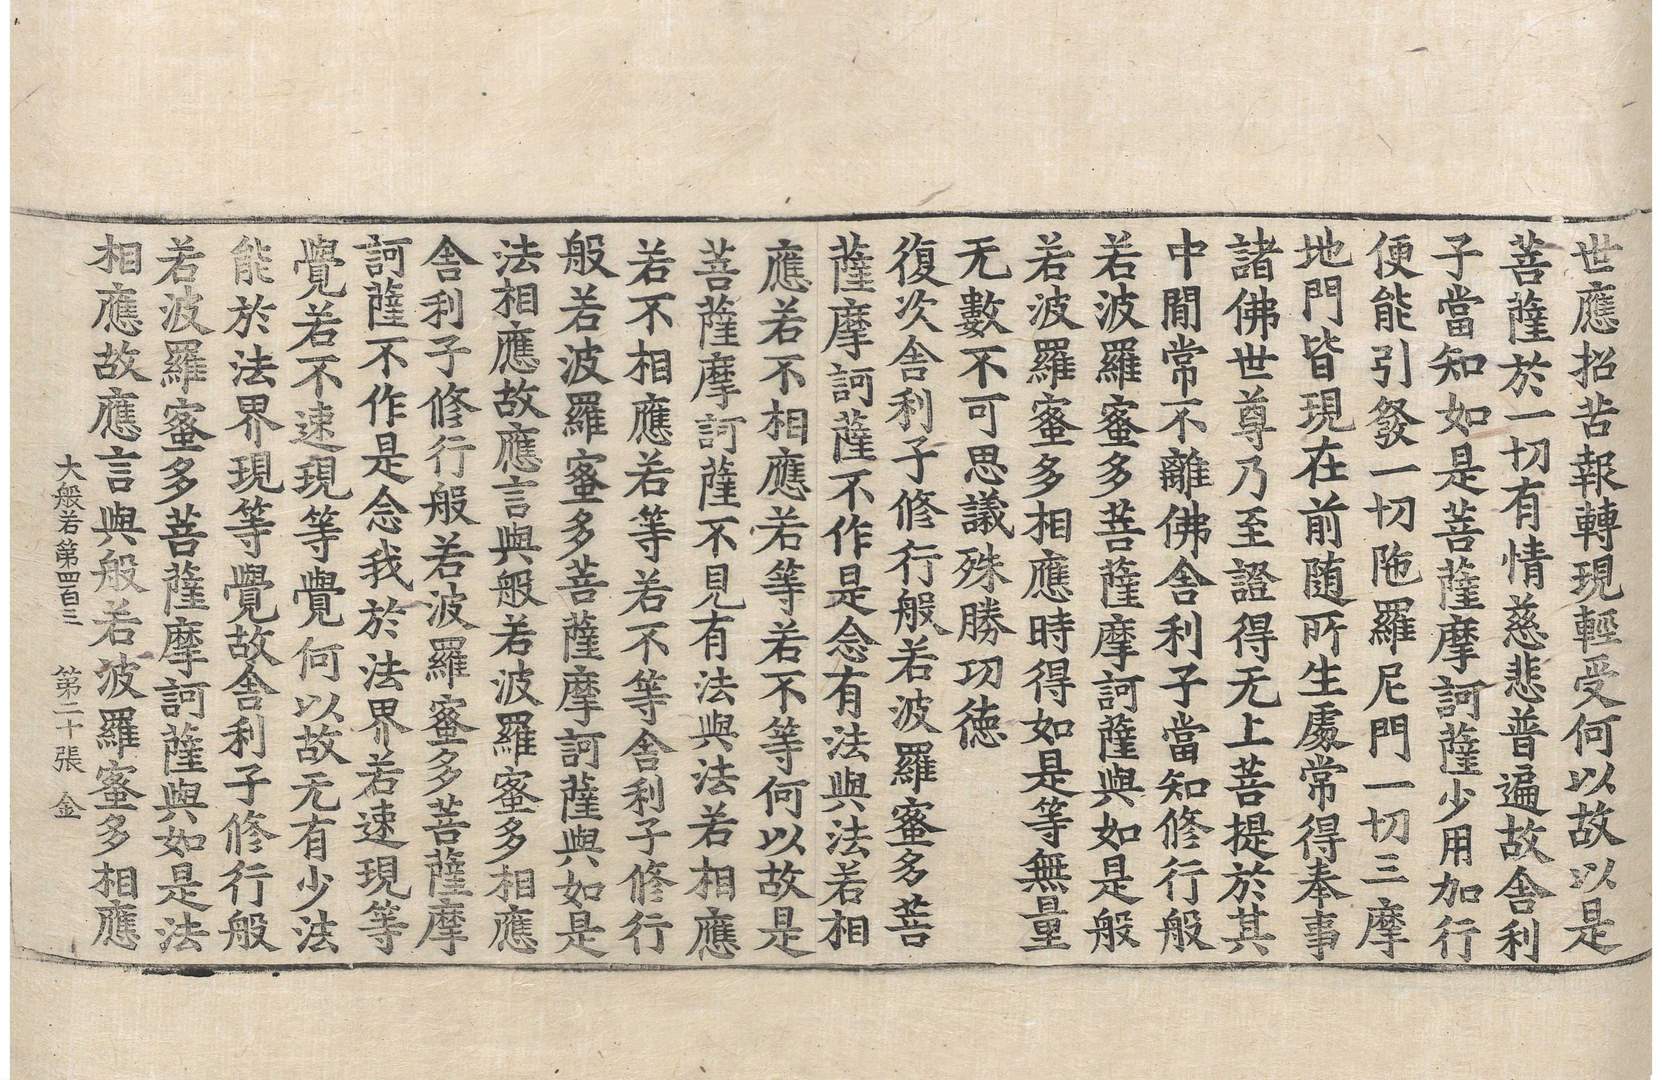 世應招苦報轉現輕受何以故以是
菩薩於一切有情慈悲普遍故舍利
子當知如是菩薩摩訶薩少用加行
便能引發一切陁羅尼門一切三摩
地門皆現在前随所生處常得奉事
諸佛世尊乃至證得无上菩提於其
中閒常不離佛舍利子當知修行般
若波羅蜜多菩薩摩訶薩與如是般
若波羅蜜多相應時得如是等無量
无數不可思議殊勝功德
復次舍利子修行般若波羅蜜多菩
薩摩訶薩不作是念有法與法若相
應若不相應若等若不等何以故是
菩薩摩訶薩不見有法與法若相應
若不相應若等若不等舍利子修行
般若波羅蜜多菩薩摩訶薩與如是
法相應故應言與般若波羅蜜多相應
舍利子修行般若波羅蜜多菩薩摩
訶薩不作是念我於法界若速現等
覺若不速現等覺何以故无有少法
能於法界現等覺故舍利子修行般
若波羅蜜多菩薩摩訶薩與如是法
相應故應言與般若波羅蜜多相應
大般若第四百三 第二十張 金